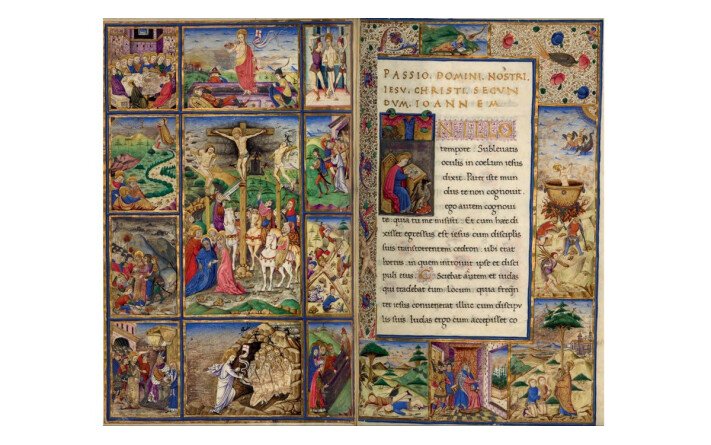 PASSIO. DOMINI. NOSTRI.
IESU. CHRISTI. SECUN
DUM. IOANNEM.
IN ILLO
tempore. Subleuatis
oculis in coelum iesus
dixit. Pater iste mun
dus te non cognouit.
ego autem cognoui
te. quia tu me misisti. Et cum haec di
xisset egressus est iesus cum discipulis
suis trans torrentem cedron. ubi erat
hortus. in quem introiuit ipse et disci
puli eius. Sciebat autem et iudas
qui tradebat eum. Locum. quia frequen
ter iesus conuenerat illuc cum discipu
lis suis. Iudas ergo cum accepisset co